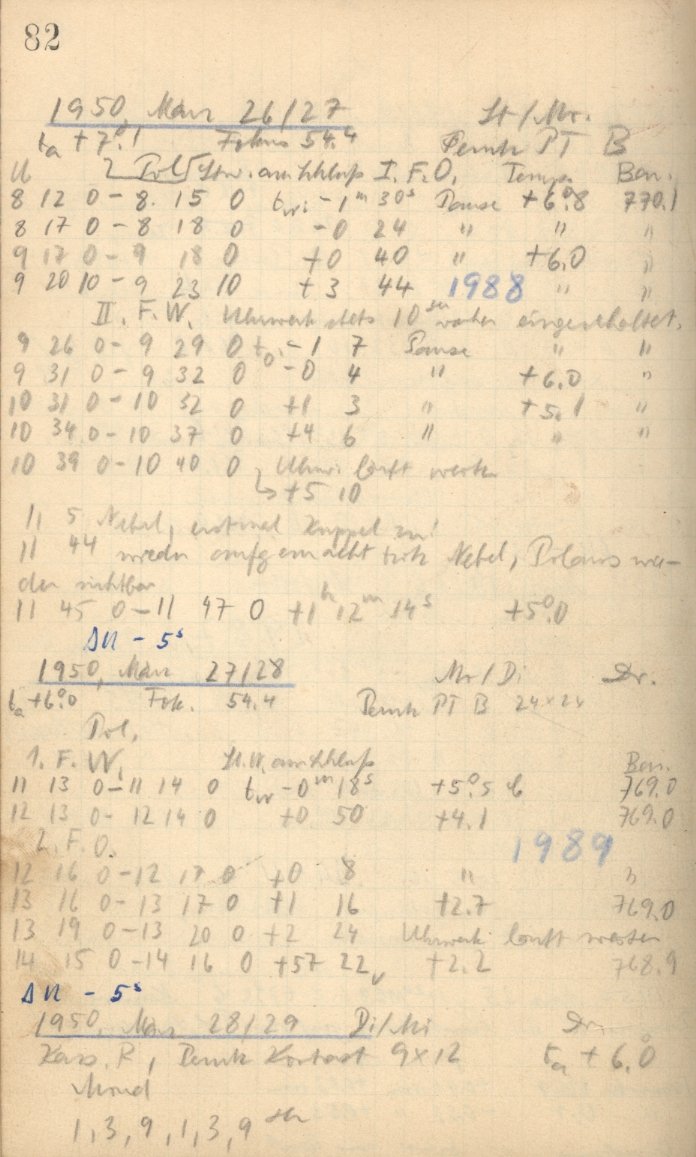 82
1950, März 26/27 St/Mo.
ta +7°.1 Fokus 54.4 Perutz PT B
U 2 Pol Stw. am Schluß I. F. O. Temp. Bar.
8 12 0 – 8. 15 0 tw: –1m 30s Pause +6°.8 770.1
8 17 0 – 8 18 0 –0 24 " " "
9 17 0 – 9 18 0 +0 40 " +6.0 "
9 20 10 – 9 23 10 +3 44 1988 " "
II. F. W. Uhrwerk stets 10 sec vorher eingeschaltet.
9 26 0 – 9 29 0 to. –1 7 Pause " "
9 31 0 – 9 32 0 –0 4 " +6.0 "
10 31 0 – 10 32 0 +1 3 " +5.1 "
10 34 0 – 10 37 0 +4 6 " " "
10 39 0 – 10 40 0 Uhrw. läuft weiter
↳ +5 10
11 5 Nebel, erstmal Kuppel zu!
11 44 wieder aufgemacht trotz Nebel, Polaris wie-
der sichtbar
11 45 0 – 11 47 0 +1h 12m 14s +5°.0
ΔU – 5s
1950, März 27/28 Mo/Di Dr.
ta +6°.0 Fok. 54.4 Perutz PT B 24×24
Pol.
1. F. W. St. W. am Schluß Bar.
11 13 0 – 11 14 0 tw –0m 18s +5°.5 769.0
12 13 0 – 12 14 0 +0 50 +4.1 769.0
2. F. O. 1989
12 16 0 – 12 17 0 +0 8 " "
13 16 0 – 13 17 0 +1 16 +2.7 769.0
13 19 0 – 13 20 0 +2 24 Uhrwerk läuft weiter
14 15 0 – 14 16 0 +57 22 +2.2 768.9
ΔU – 5s
1950, März 28/29 Di/Mi Dr.
Kass. R, Perutz Kontrast 9×12 ta + 6.0
Mond
1, 3, 9, 1, 3, 9